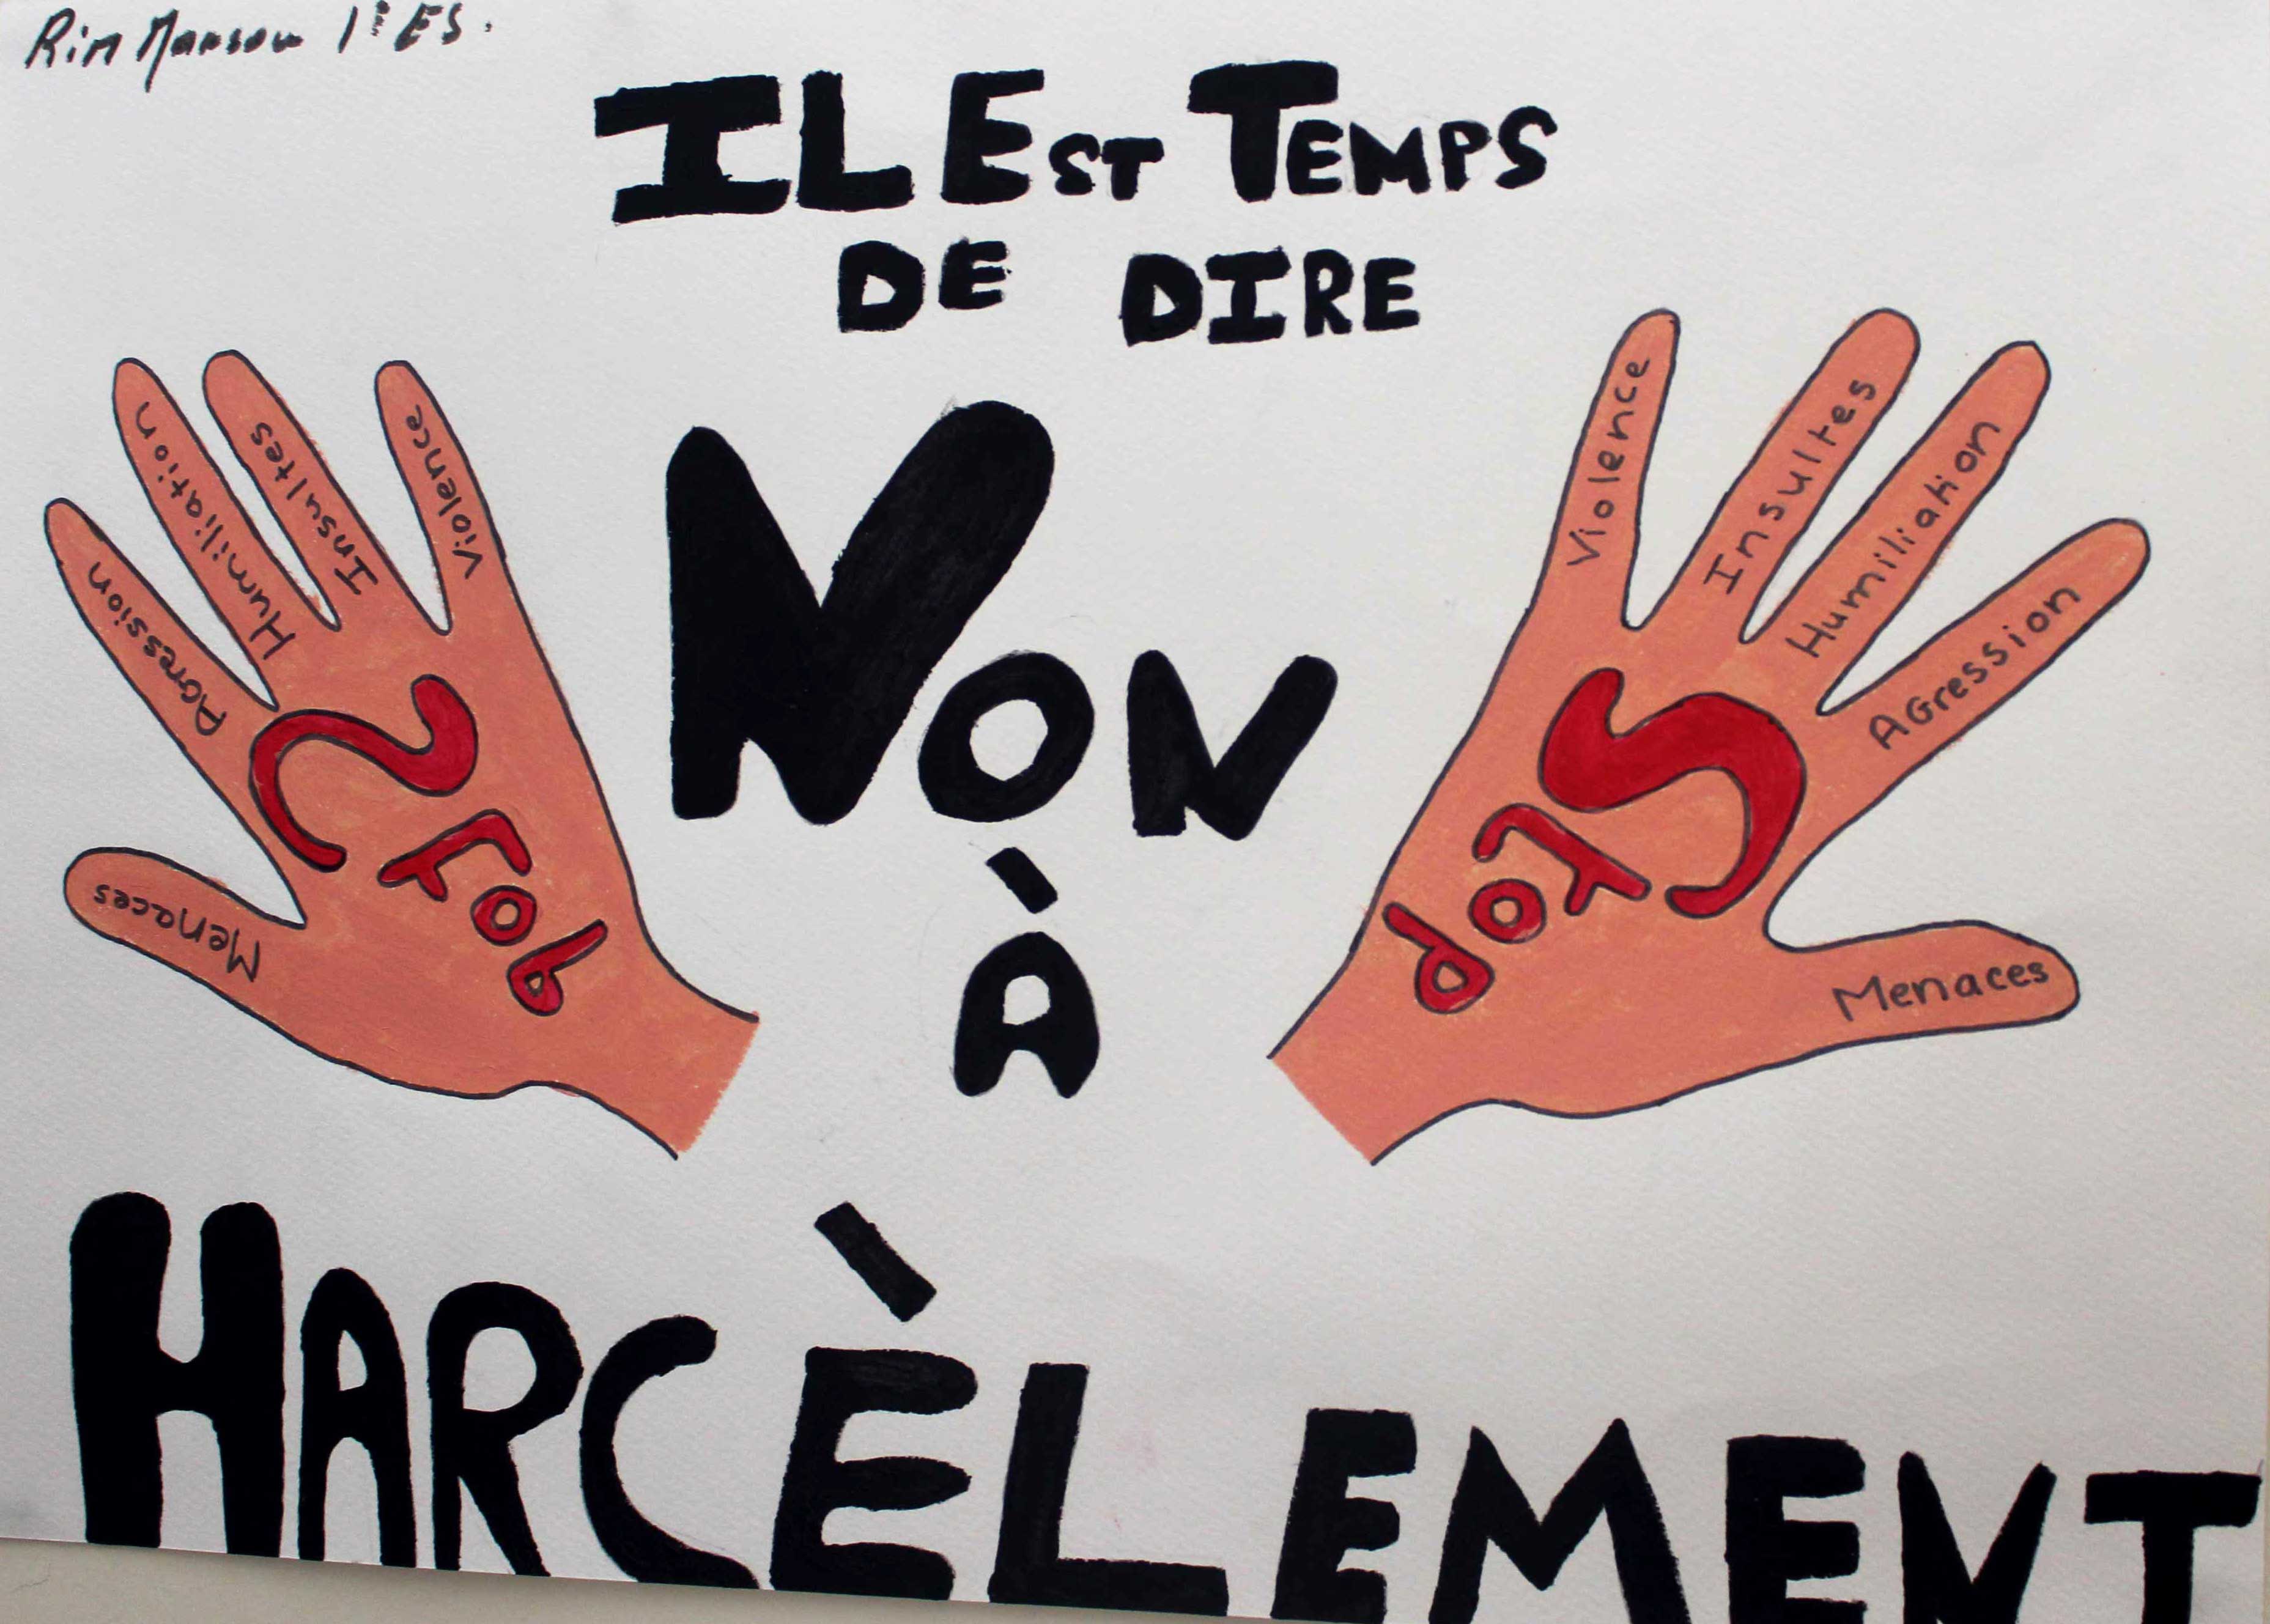 Rim Mansou 1è ES.
IL EST TEMPS
DE DIRE
NON
À
HARCÈLEMENT
Violence
Insultes
Humiliation
Agression
Menaces
Stop
Violence
Insultes
Humiliation
Agression
Menaces
Stop